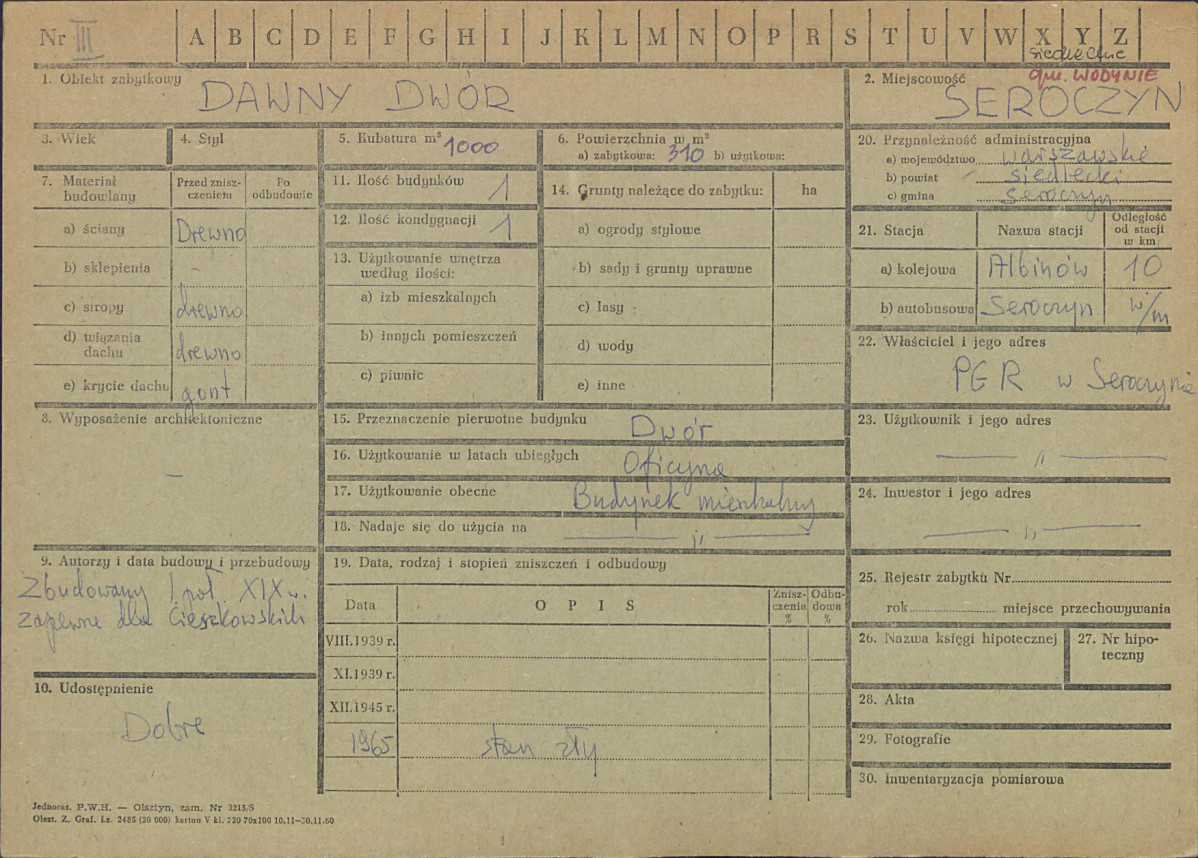 Nr III A B C D E F G H I J K L M N O P R S T U V W X Y Z
siedleckie
gm. WODYNIE
1. Obiekt zabytkowy
DAWNY DWÓR
2. Miejscowość
SEROCZYN
3. Wiek
4. Styl
5. Kubatura m³ 1000
6. Powierzchnia w m²
a) zabytkowa: 310 b) użytkowa:
7. Materiał budowlany
Przed zniszczeniem
Po odbudowie
a) ściany Drewno
b) sklepienia -
c) stropy drewno
d) wiązania dachu drewno
e) krycie dachu gont
8. Wyposażenie architektoniczne
—
9. Autorzy i data budowy i przebudowy
Zbudowany I poł. XIX w.
zapewne dla Cieszkowskich
10. Udostępnienie
Dobre
11. Ilość budynków 1
12. Ilość kondygnacji 1
13. Użytkowanie wnętrza według ilości:
a) izb mieszkalnych
b) innych pomieszczeń
c) piwnic
14. Grunty należące do zabytku: ha
a) ogrody stylowe
b) sady i grunty uprawne
c) lasy
d) wody
e) inne
15. Przeznaczenie pierwotne budynku Dwór
16. Użytkowanie w latach ubiegłych Oficyna
17. Użytkowanie obecne Budynek mieszkalny
18. Nadaje się do użycia na — „ —
19. Data, rodzaj i stopień zniszczeń i odbudowy
Data OPIS Zniszczenia % Odbudowa %
VIII.1939 r.
XI.1939 r.
XII.1945 r.
1965 stan zły
20. Przynależność administracyjna
a) województwo warszawskie
b) powiat siedlecki
c) gmina Seroczyn
21. Stacja Nazwa stacji Odległość od stacji w km
a) kolejowa Albinów 10
b) autobusowa Seroczyn w/m
22. Właściciel i jego adres
PGR w Seroczynie
23. Użytkownik i jego adres
— „ —
24. Inwestor i jego adres
— „ —
25. Rejestr zabytku Nr
rok miejsce przechowywania
26. Nazwa księgi hipotecznej
27. Nr hipoteczny
28. Akta
29. Fotografie
30. Inwentaryzacja pomiarowa
Jednoraz. P.W.H. — Olsztyn, zam. Nr 3215/S
Olszt. Z. Graf. Lz. 2485 (30 000) karton V kl. 220 70x100 10.11—30.11.60